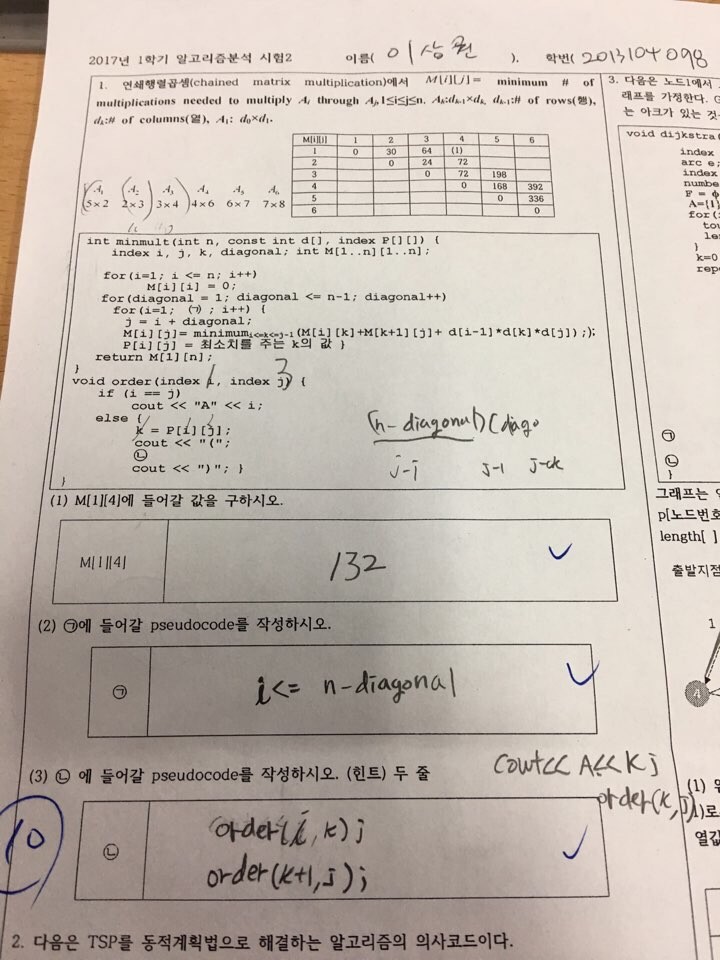 2017년 1학기 알고리즘분석 시험2 이름( 이상권 ), 학번( 2013104098
1. 연쇄행렬곱셈(chained matrix multiplication)에서 M[i][j]= minimum # of
multiplications needed to multiply Ai through Aj,1≤i≤j≤n. Ak:dk-1×dk, dk-1:# of rows(행),
dk:# of columns(열), A1: d0×d1.
M[i][j] 1 2 3 4 5 6
1 0 30 64 (1)
2 0 24 72
3 0 72 198
4 0 168 392
5 0 336
6 0
A1 A2 A3 A4 A5 A6
5×2 2×3 3×4 4×6 6×7 7×8
int minmult(int n, const int d[], index P[][]) {
index i, j, k, diagonal; int M[1..n][1..n];
for(i=1; i <= n; i++)
M[i][i] = 0;
for(diagonal = 1; diagonal <= n-1; diagonal++)
for(i=1; ㉠ ; i++) {
j = i + diagonal;
M[i][j]= minimumi<=k<=j-1(M[i][k]+M[k+1][j]+ d[i-1]*d[k]*d[j]);
P[i][j] = 최소치를 주는 k의 값 }
return M[1][n];
}
void order(index i, index j) {
if (i == j)
cout << "A" << i;
else {
k = P[i][j];
cout << "(";
㉡
cout << ")"; }
}
1 3
(n-diagonal)(diago
j-i j-1
(1) M[1][4]에 들어갈 값을 구하시오.
M[1][4] 132
(2) ㉠에 들어갈 pseudocode를 작성하시오.
㉠ i<= n-diagonal
(3) ㉡ 에 들어갈 pseudocode를 작성하시오. (힌트) 두 줄
cout<< A<< K;
order(k, j)
10
㉡ order(i, k);
order(k+1, j);
2. 다음은 TSP를 동적계획법으로 해결하는 알고리즘의 의사코드이다.
3. 다음은 노드1에서
래프를 가정한다. G
는 아크가 있는 것
void dijkstra(
index
arc e;
index
numbe
F = ϕ
A={1}
for(
tou
le
}
k=0
repe
㉠
㉡
}
그래프는
p[노드번호
length[ ]
출발지점
1
A
(1)
1)로
열값